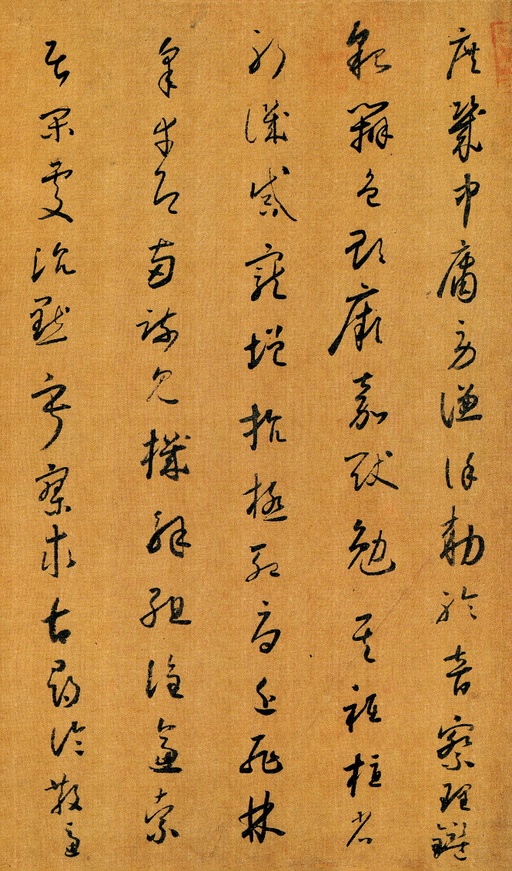 庶幾中庸勞謙謹敕聆音察理鑒
貌辨色貽厥嘉猷勉其祗植省
躬譏誡寵增抗極殆辱近恥林
皋幸即兩疏見機解組誰逼索
居閑處沉默寂寥求古尋論散慮